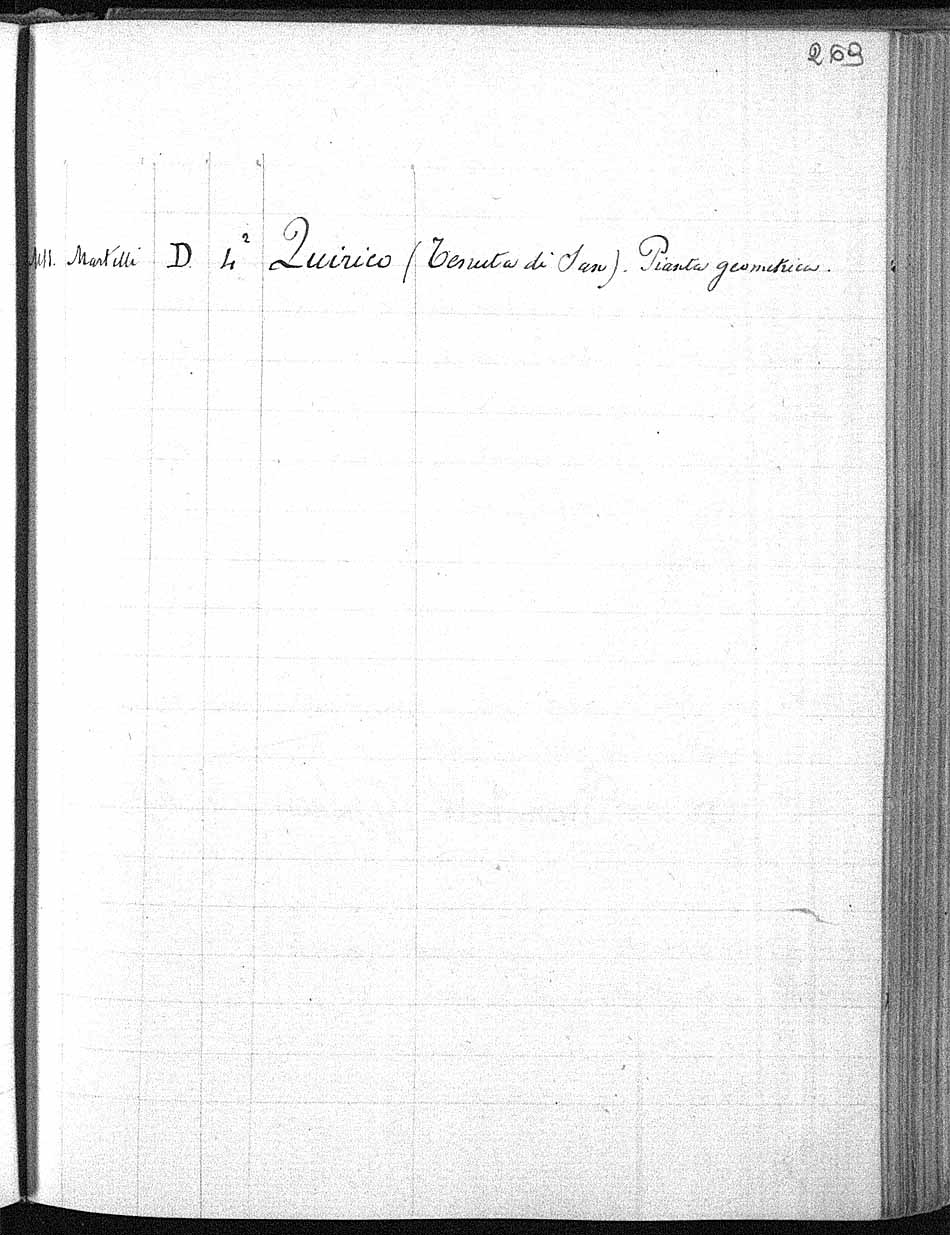 269
Mss. Martelli D. 4² Quirico (Tenuta di San). Pianta geometrica.